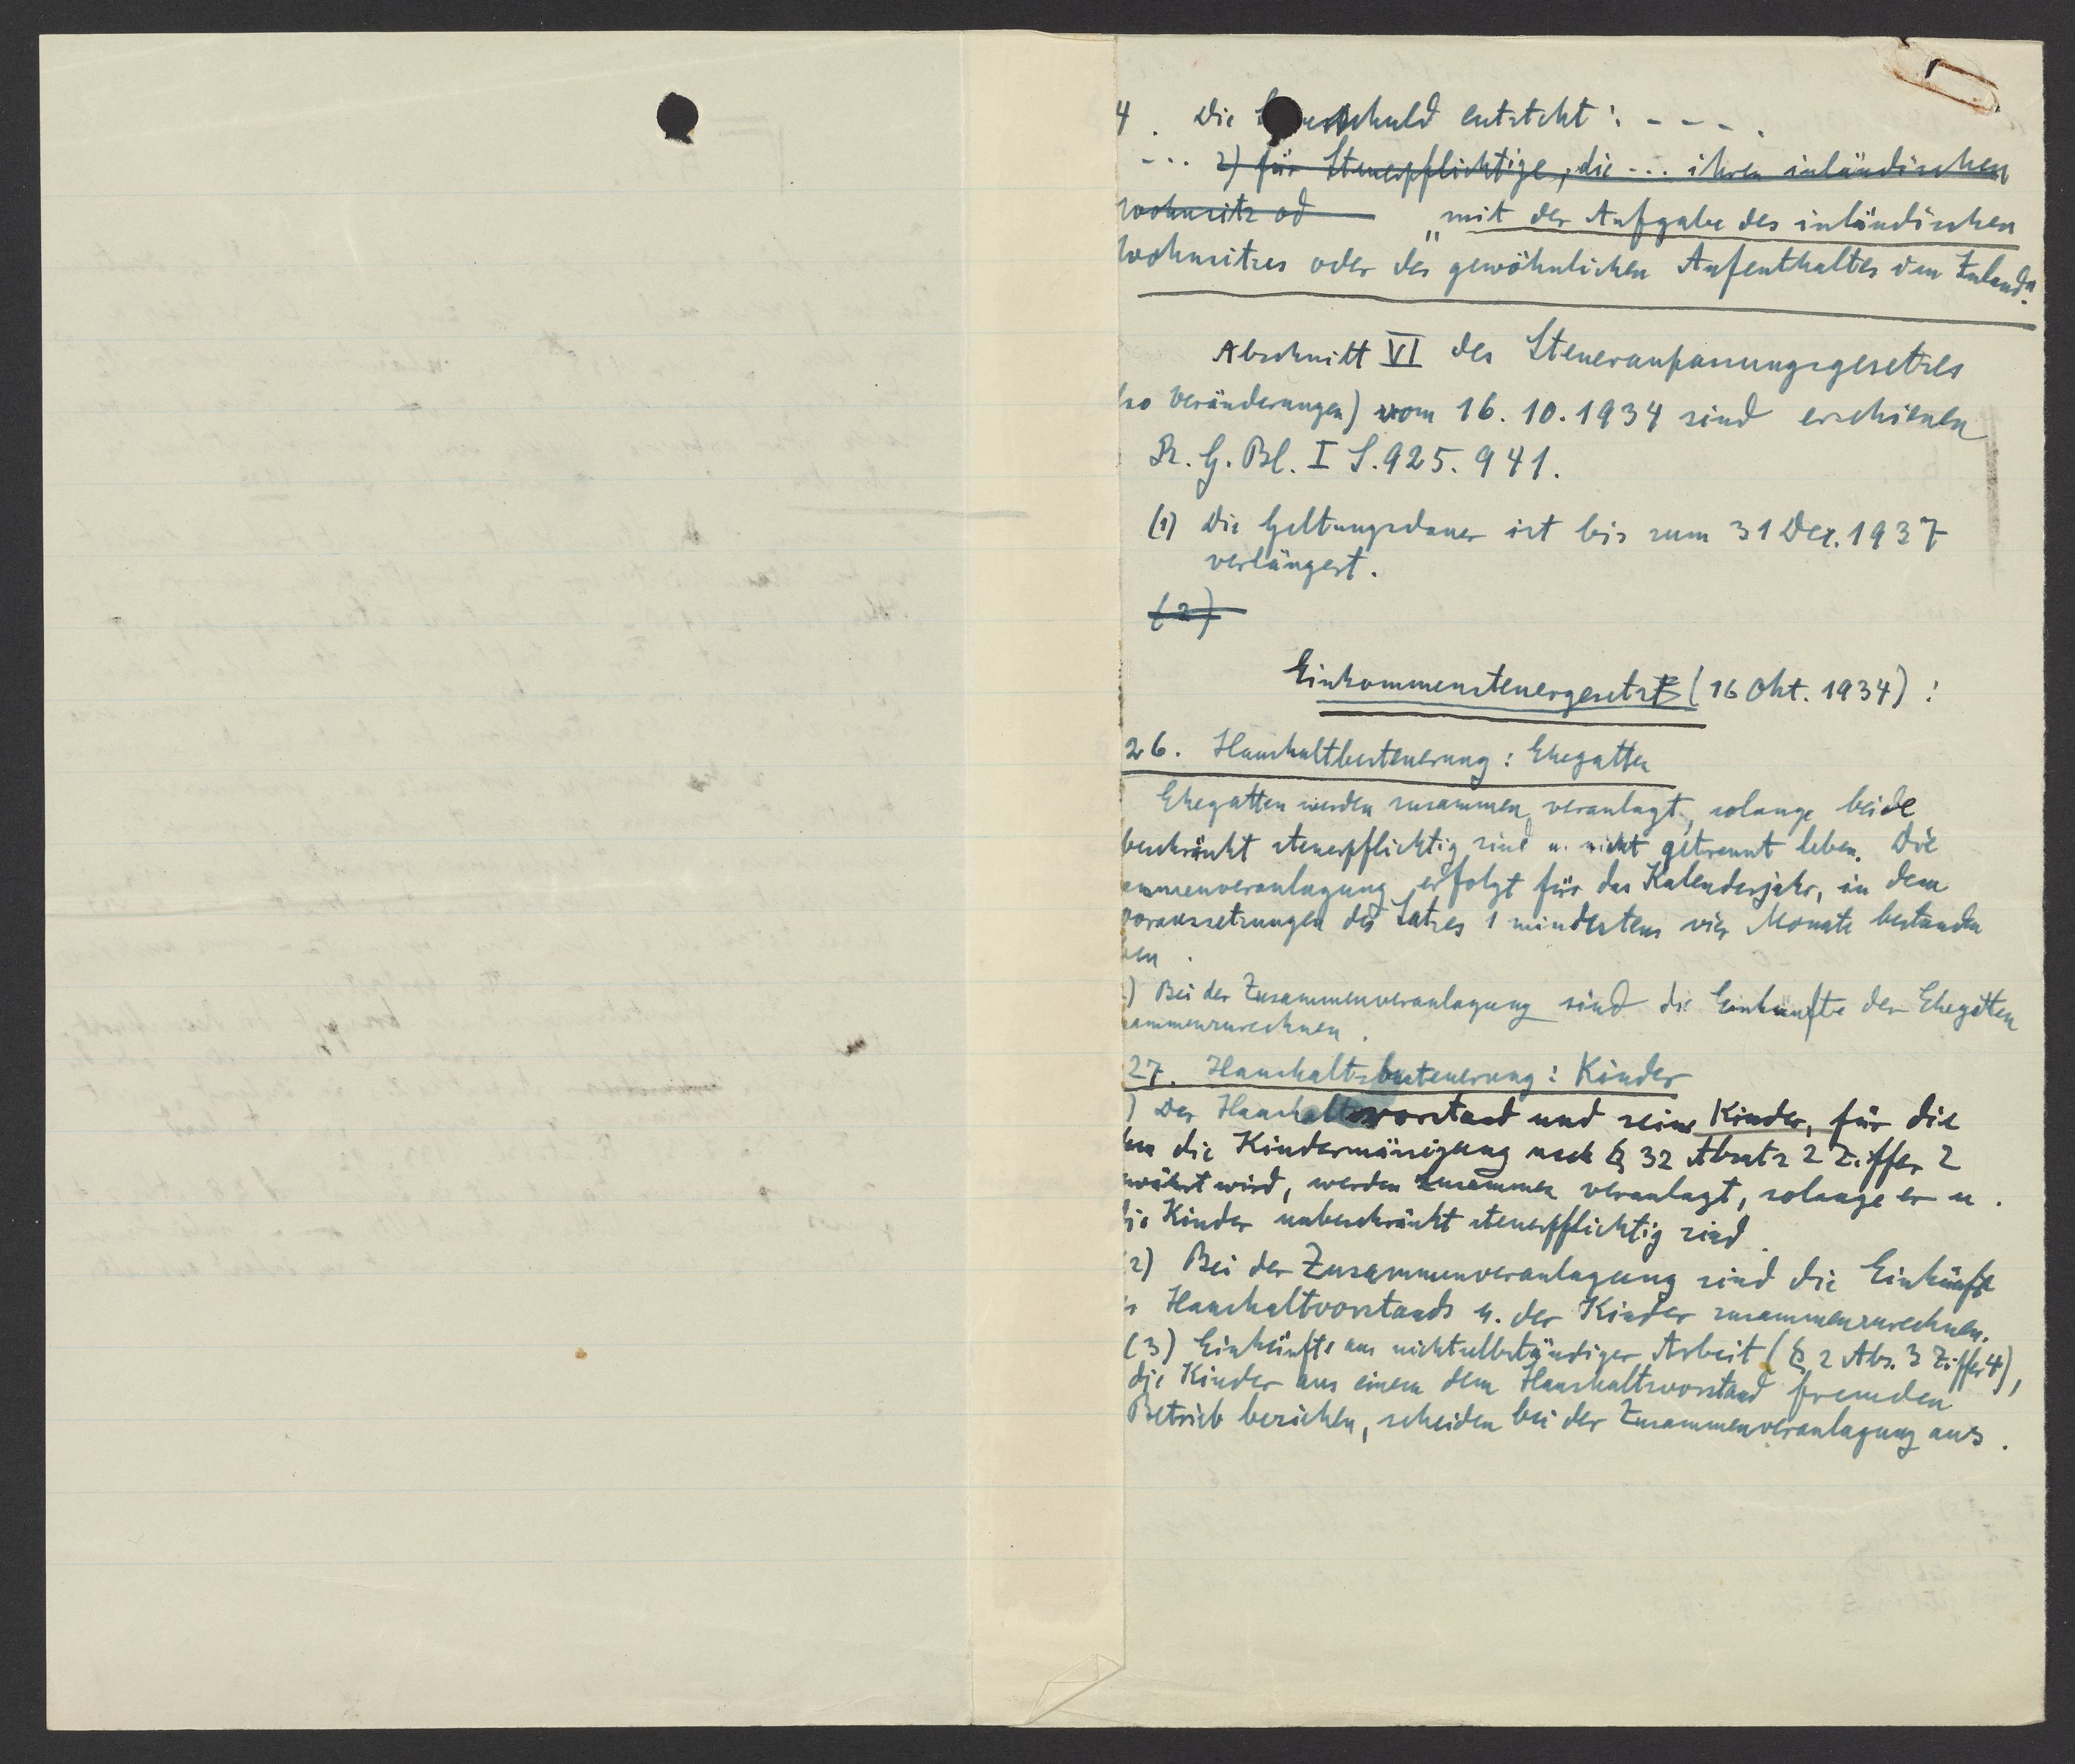 4. Die schuld entsteht: - - - .
- . . 2) für Steuerpflichtige, die - . . ihren inländischen
Wohnsitz od „mit der Aufgabe des inländischen
Wohnsitzes oder des gewöhnlichen Aufenthaltes im Inland".
Abschnitt VI des Steueranpassungsgesetzes
so Veränderungen) vom 16. 10. 1934 sind erschienen
R. G. Bl. I S. 925. 941.
(1) Die Geltungsdauer ist bis zum 31 Dez. 1937
verlängert.
(2)
Einkommensteuergesetz (16 Okt. 1934):
26. Haushaltbesteuerung: Ehegatten
Ehegatten werden zusammen veranlagt, solange beide
beschränkt steuerpflichtig sind u. nicht getrennt leben. Die
ammenveranlagung erfolgt für das Kalenderjahr, in dem
Voraussetzungen des Satzes 1 mindestens vier Monate bestanden
ben.
) Bei der Zusammenveranlagung sind die Einkünfte der Ehegatten
ammenzurechnen.
27. Haushaltsbesteuerung: Kinder
) Der Haushaltsvorstand und seine Kinder, für die
hm die Kindermässigung nach § 32 Absatz 2 Ziffer 2
währt wird, werden zusammen veranlagt, solange er u.
die Kinder unbeschränkt steuerpflichtig sind.
2) Bei der Zusammenveranlagung sind die Einkünfte
s Haushaltvorstands u. der Kinder zusammenzurechnen.
(3) Einkünfte aus nichtselbständiger Arbeit (§ 2 Abs. 3 Ziffer 4),
die Kinder aus einem dem Haushaltsvorstand fremden
Betrieb beziehen, scheiden bei der Zusammenveranlagung aus.